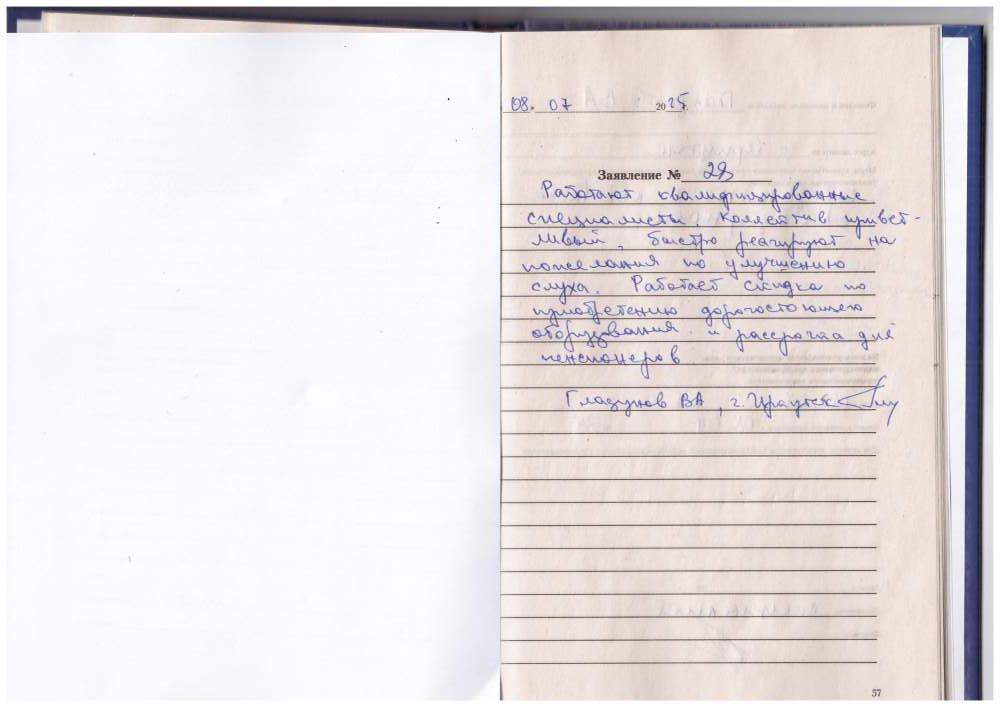 08. 07 2025г.
Заявление № 28
Работают квалифицированные
специалисты. Коллектив привет-
ливый, быстро реагируют на
пожелания по улучшению
слуха. Работает скидка по
приобретению дорогостоющего
оборудования и рассрочка для
пенсионеров
Глазунов ВА, г.
57